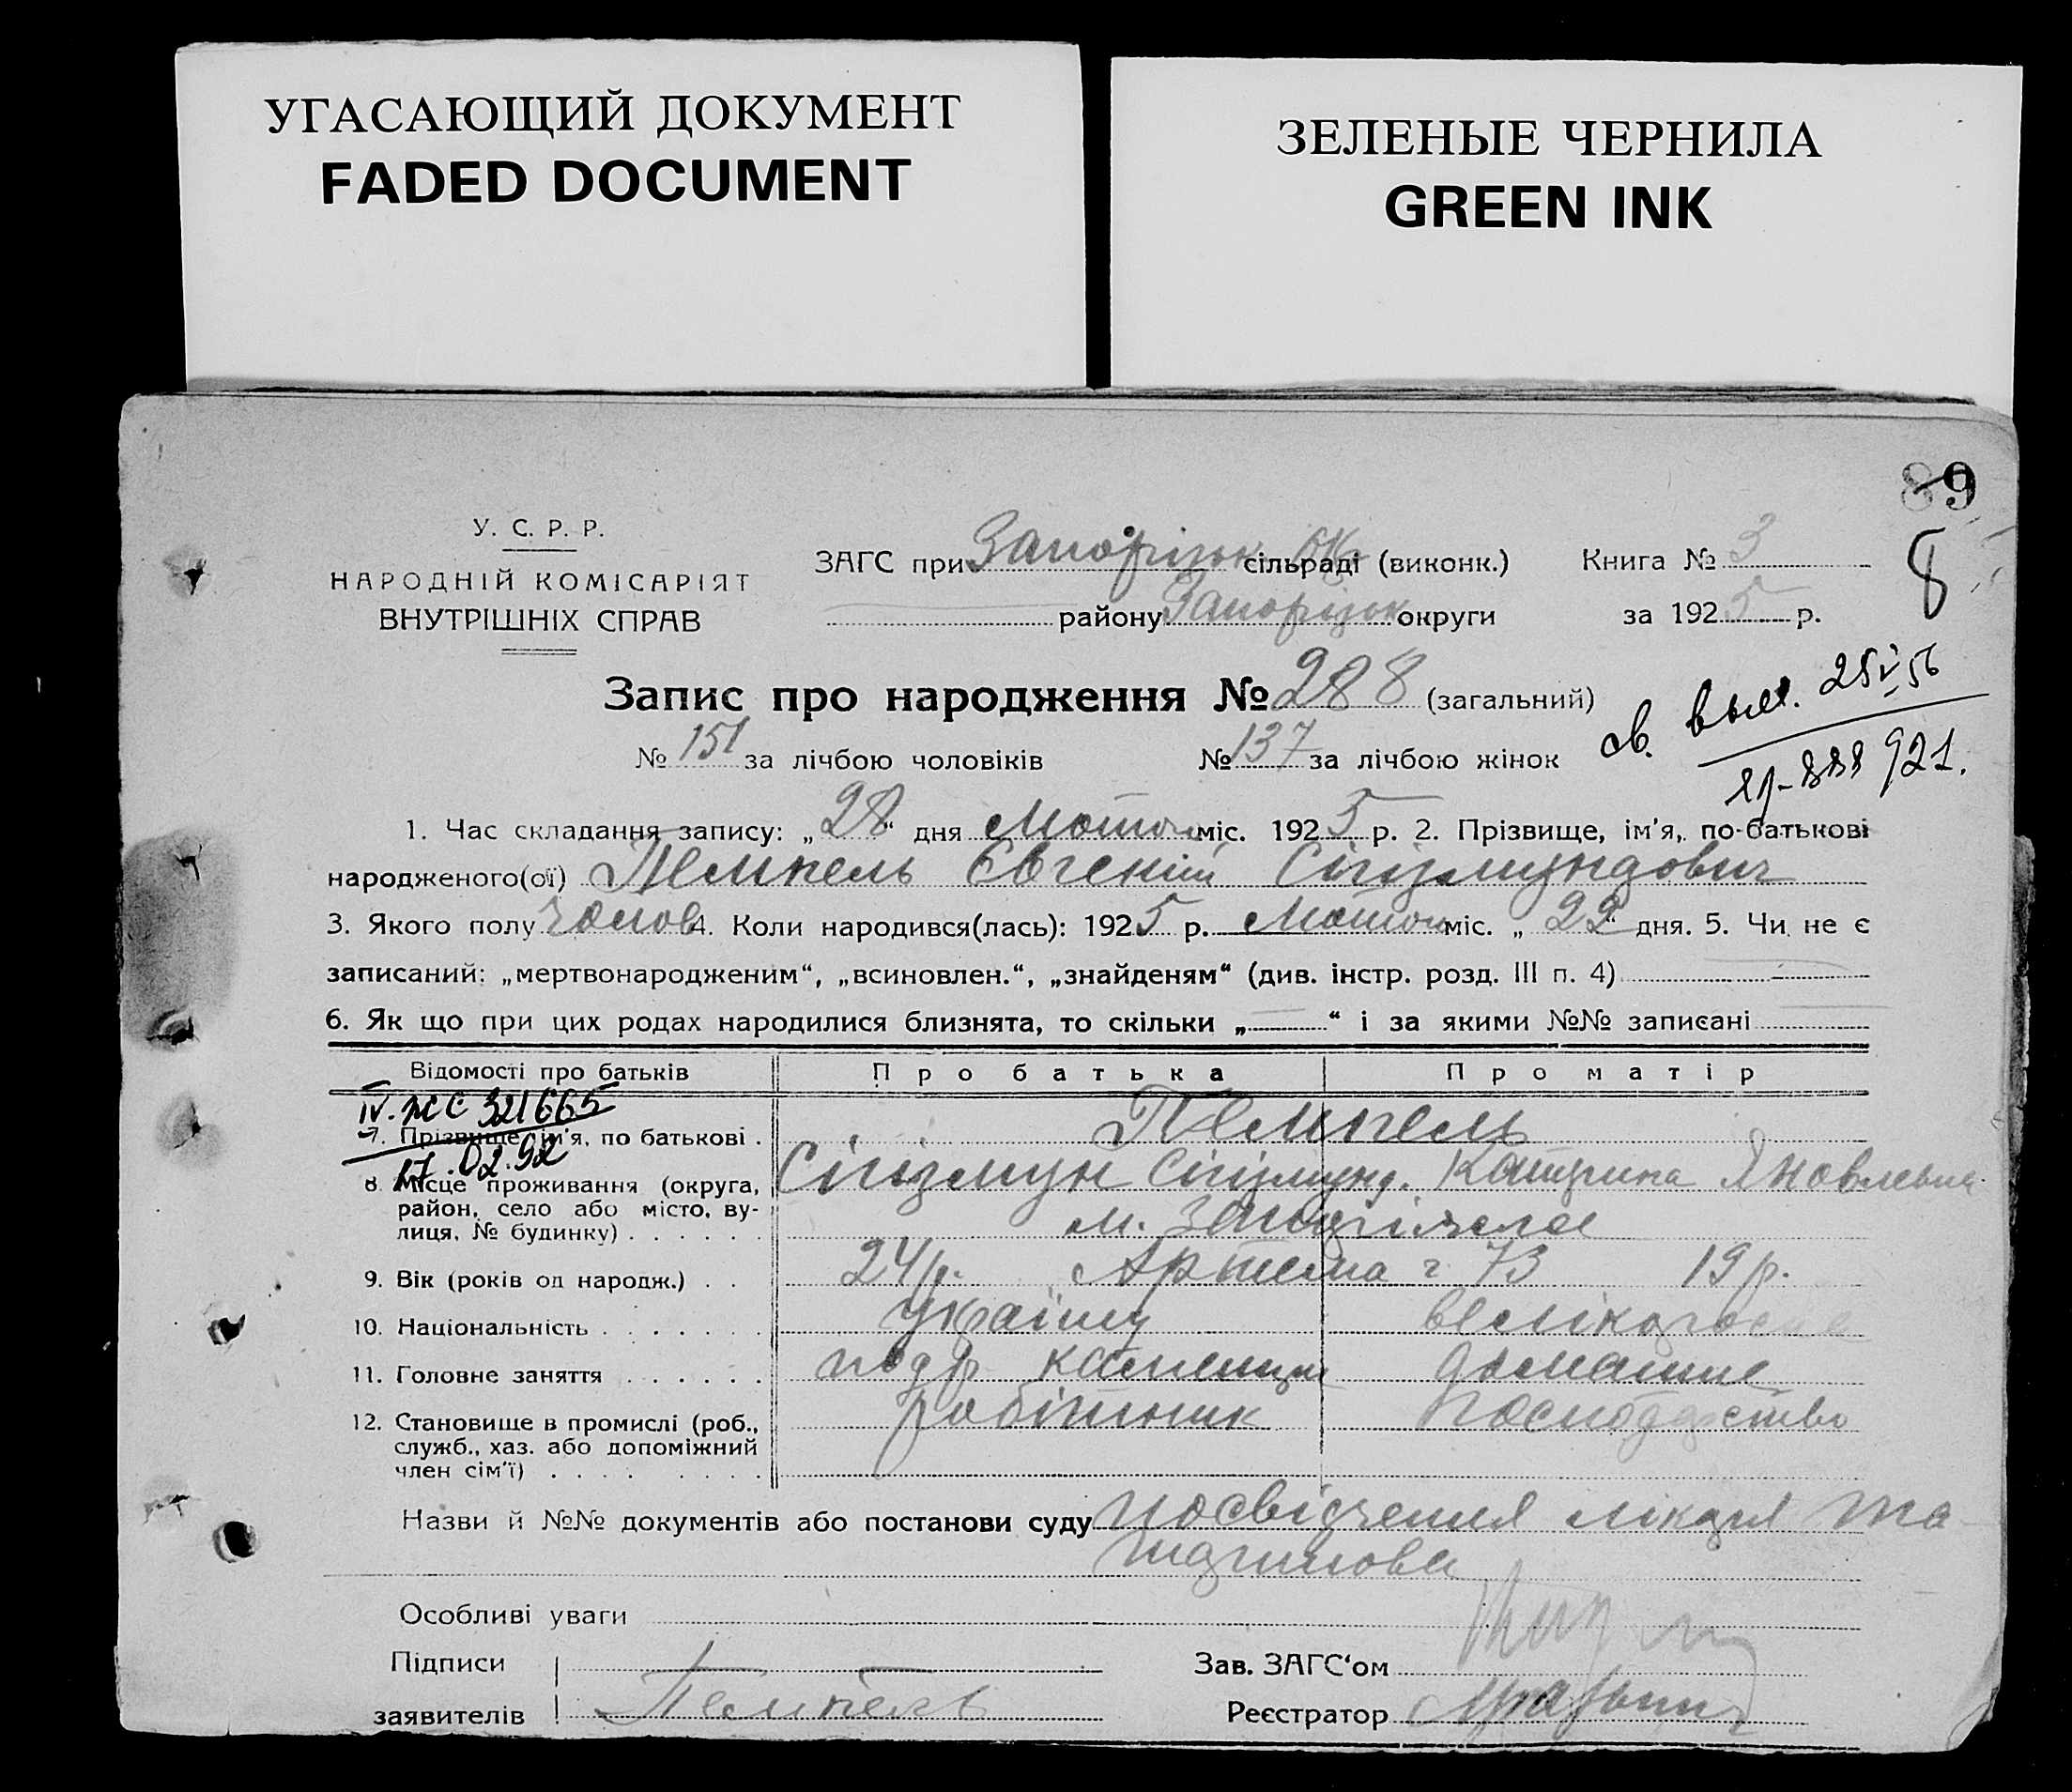 УГАСАЮЩИЙ ДОКУМЕНТ
FADED DOCUMENT
ЗЕЛЕНЫЕ ЧЕРНИЛА
GREEN INK
89
8
У. С. Р. Р.
НАРОДНІЙ КОМІСАРІЯТ
ВНУТРІШНІХ СПРАВ
ЗАГС при Запорізьк сільраді (виконк.) Книга № 3
району Запорізьк округи за 1925 р.
Запис про народження № 288 (загальний)
№ 151 за лічбою чоловіків № 137 за лічбою жінок
св. выд. 25 V 56
921.
1. Час складання запису: „28“ дня Мотого міс. 1925 р. 2. Прізвище, ім'я, по-батькові
народженого(ої) Темпель Євгеній Сігізмундович
3. Якого полу чолов 4. Коли народився(лась): 1925 р. Мотого міс. „22“ дня. 5. Чи не є
записаний: „мертвонародженим“, „всиновлен.“, „знайденям“ (див. інстр. розд. III п. 4)
6. Як що при цих родах народилися близнята, то скільки „ “ і за якими №№ записані
Відомості про батьків Про батька Про матір
IV-ЖС 321665
17.02.92
7. Прізвище, ім'я, по батькові . Темпель
Сігізмун Сігізмунд. Катерина Яковлевна
8. Місце проживання (округа,
район, село або місто, ву-
лиця, № будинку) . . . . . . м. Запоріжжя
9. Вік (років од народж.) . . 24 р. Артема 73 19 р.
10. Національність . . . . . . . україну великорос
11. Головне заняття . . . . . . каменщик домашнє
12. Становище в промислі (роб.,
служб., хаз. або допоміжний
член сім'ї) . . . . . . . . робітник господарство
Назви й №№ документів або постанови суду посвідчення лікаря та
Особливі уваги
Підписи
заявителів Темпель
Зав. ЗАГС'ом
Реєстратор